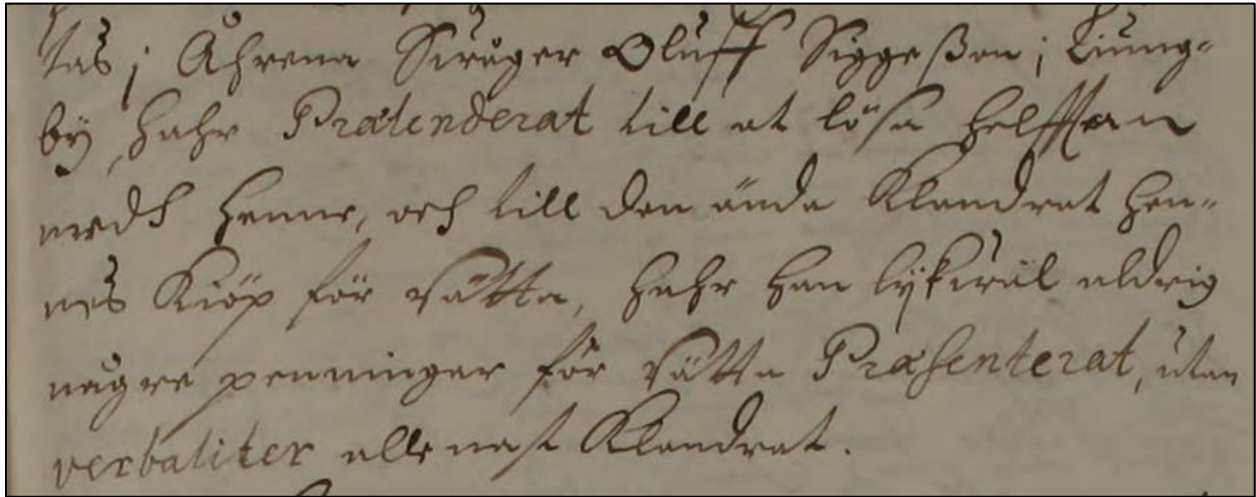 tas; Åhrena Swåger Oluff Siggeßon i Liung-
by, hahr Prætenderat till at lösa helfften
medh henne, och till den ända Klandrat hen-
nes Kiöp för rätta, hahr han lijkwäl aldrig
någre penningar för rätta Præsenterat, utan
verbaliter allenast Klandrat.